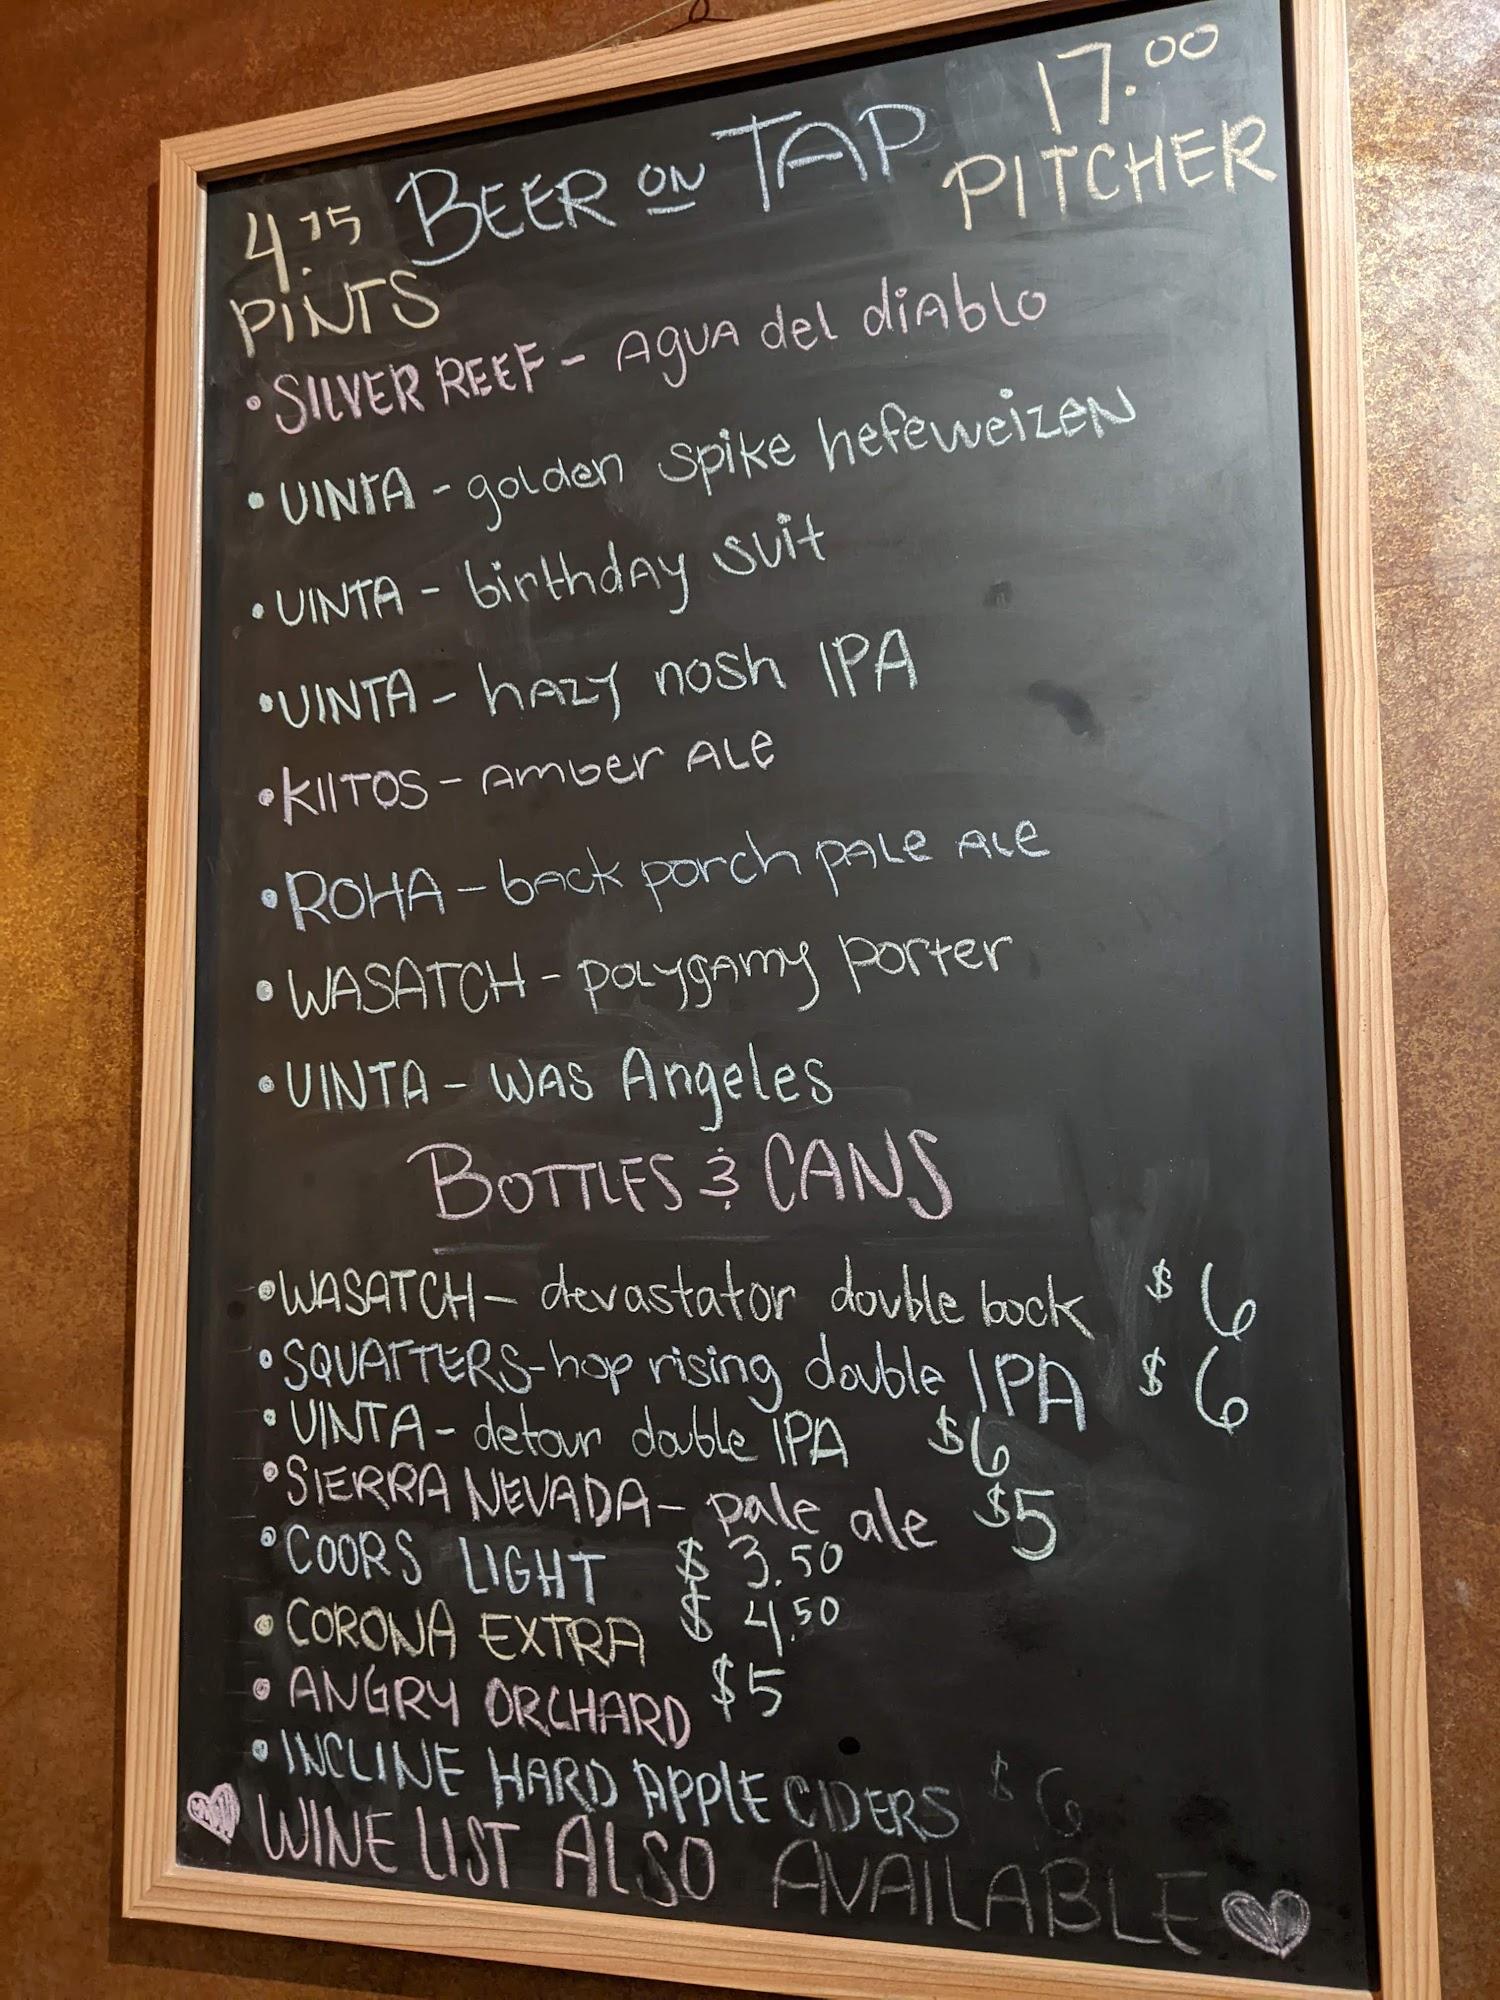 4.75 BEER ON TAP 17.00
PINTS PITCHER
• SILVER REEF - AGUA del diAblo
• UINTA - golden spike hefeweizen
• UINTA - birthday suit
• UINTA - hazy nosh IPA
• KIITOS - Amber Ale
• ROHA - back porch pale ale
• WASATCH - polygamy porter
• UINTA - was Angeles
BOTTLES & CANS
• WASATCH - devastator double bock $6
• SQUATTERS - hop rising double IPA $6
• UINTA - detour double IPA $6
• SIERRA NEVADA - pale ale $5
• COORS LIGHT $3.50
• CORONA EXTRA $4.50
• ANGRY ORCHARD $5
• INCLINE HARD APPLE CIDERS $6
WINE LIST ALSO AVAILABLE